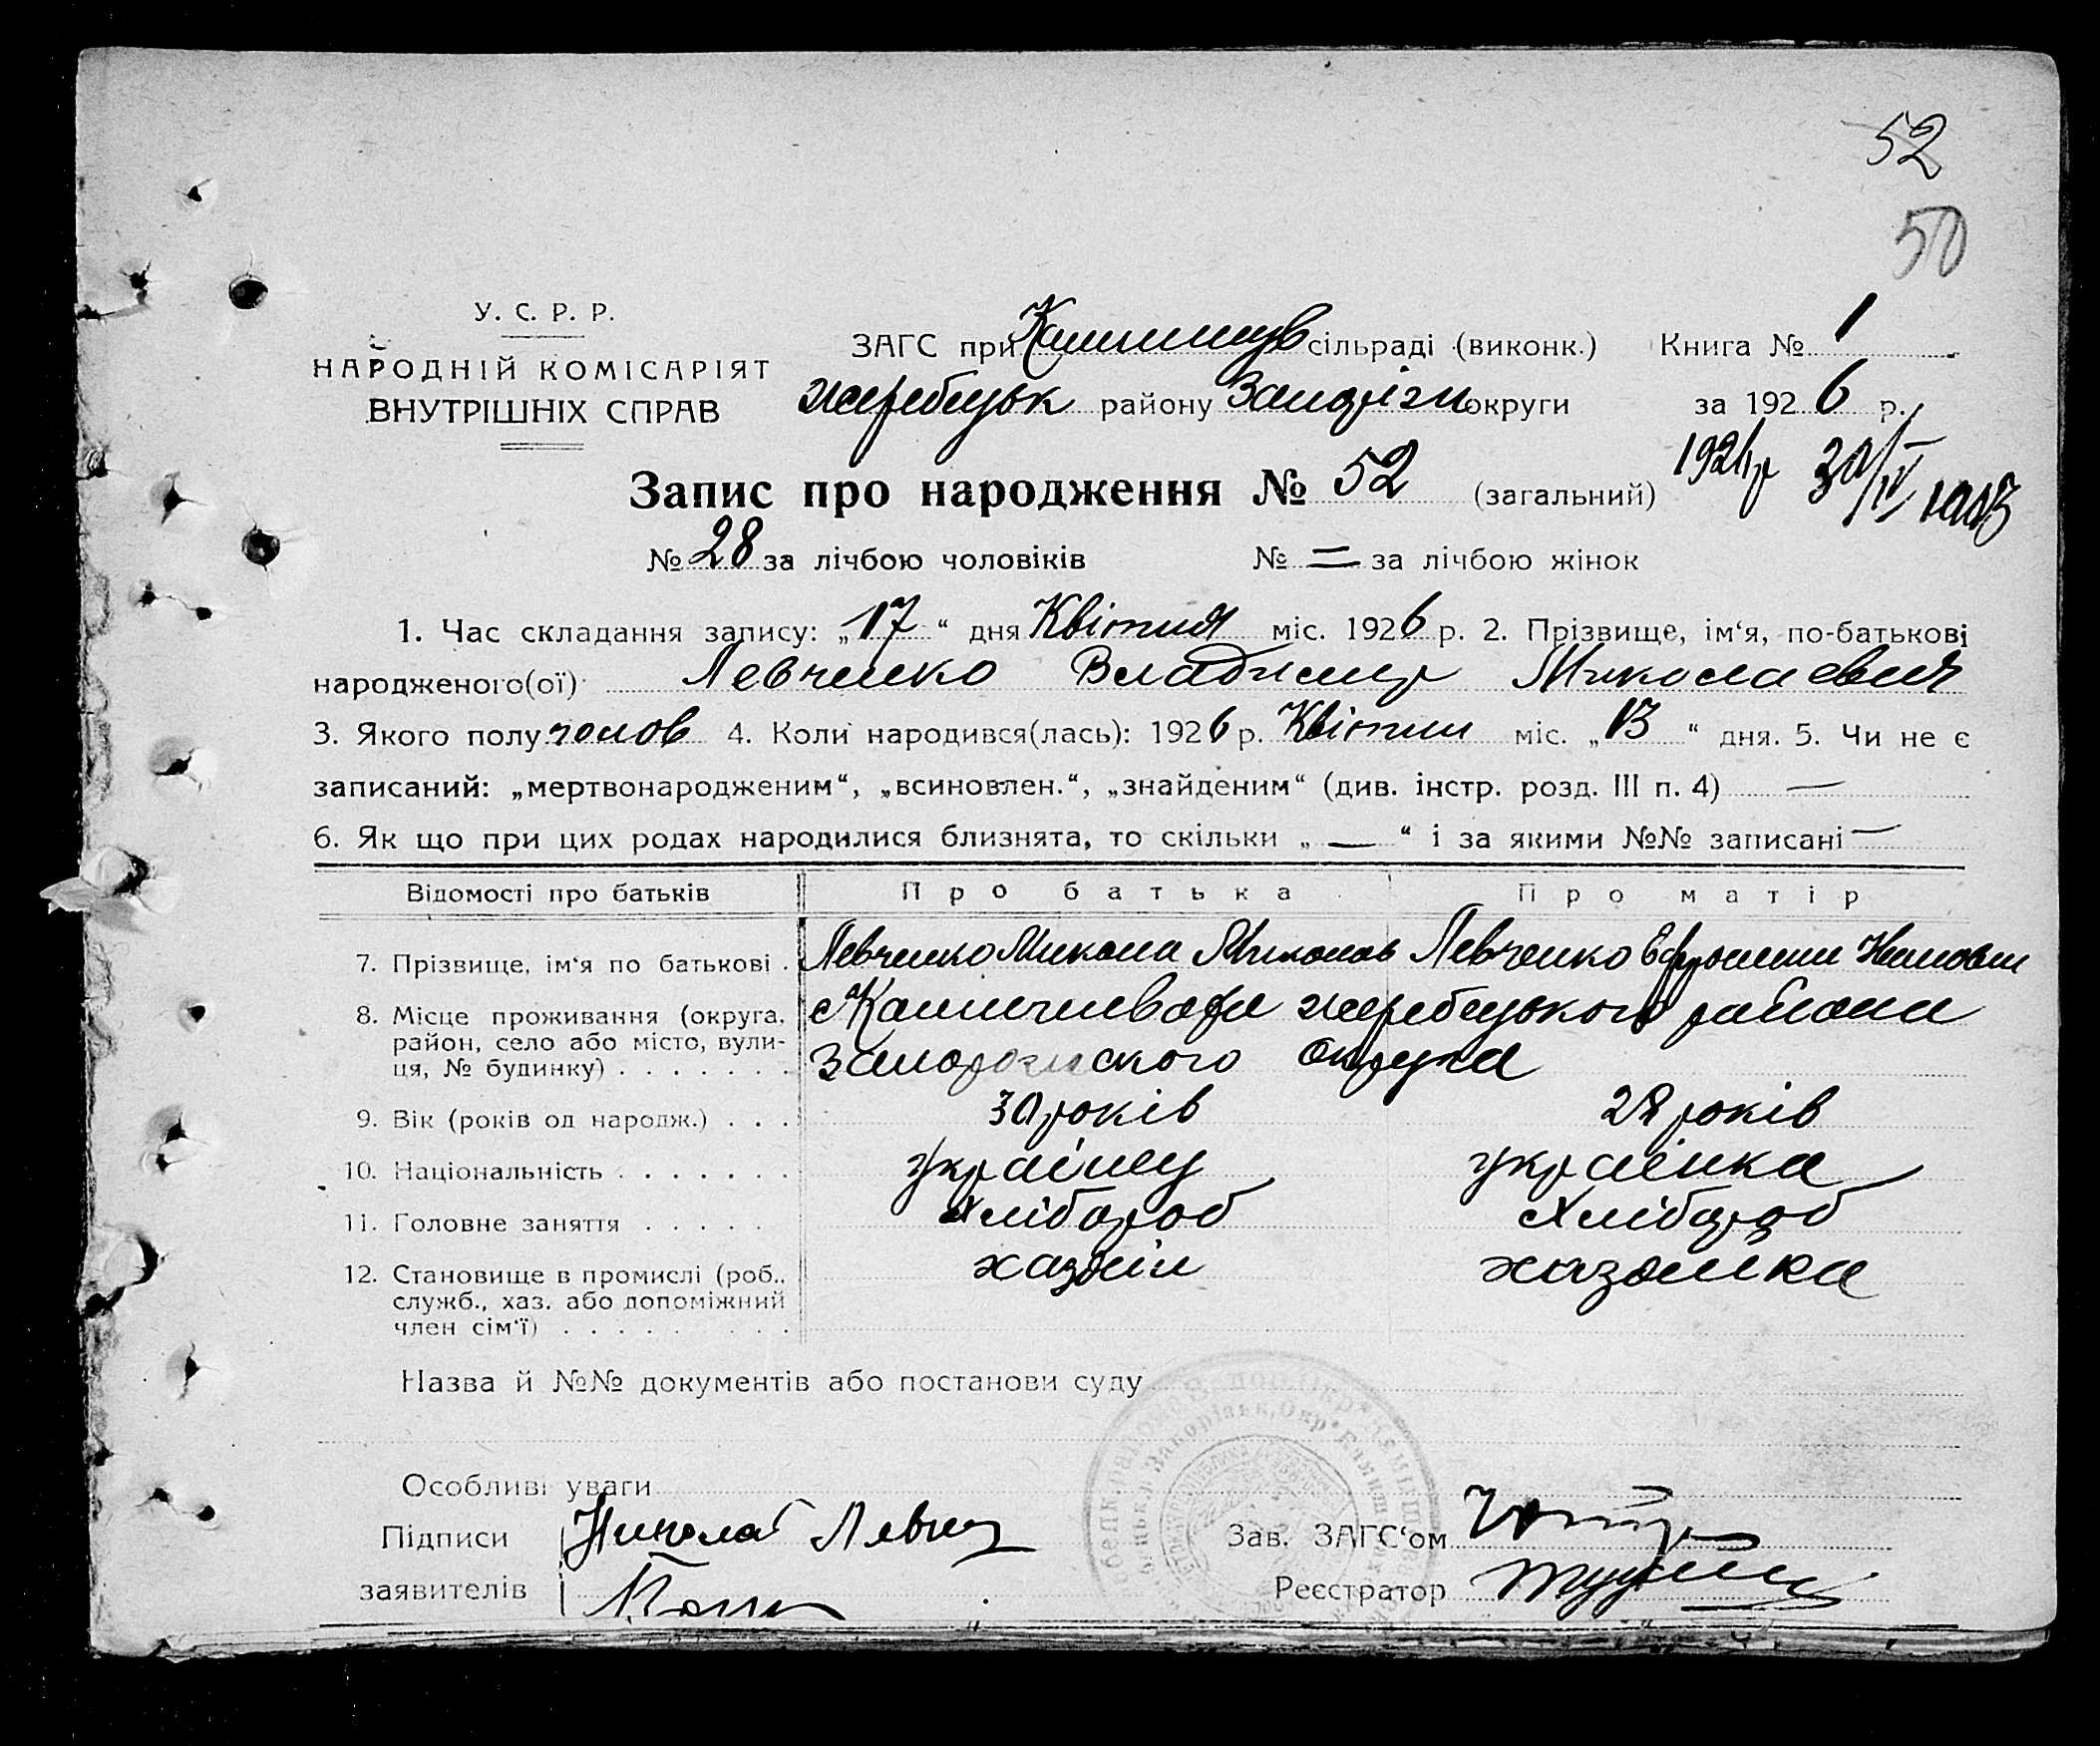 52
50
У. С. Р. Р.
НАРОДНІЙ КОМІСАРІЯТ
ВНУТРІШНІХ СПРАВ
ЗАГС при сільраді (виконк.) Книга № 1
жеребецьк району округи за 1926 р.
Запис про народження № 52 (загальний)
№ 28 за лічбою чоловіків № = за лічбою жінок
1. Час складання запису: „17“ дня Квітня міс. 1926 р. 2. Прізвище, ім‘я, по-батькові
народженого(ої) Левченко Владимир Миколаевич
3. Якого полу чолов 4. Коли народився(лась): 1926 р. Квітня міс. „13“ дня. 5. Чи не є
записаний: „мертвонародженим“, „всиновлен.“, „знайденим“ (див. інстр. розд. III п. 4) —
6. Як що при цих родах народилися близнята, то скільки „—“ і за якими №№ записані —
Відомості про батьків Про батька Про матір
7. Прізвище, ім‘я по батькові . Левченко Микола Миколов Левченко
8. Місце проживання (округа, жеребецького района
район, село або місто, вули-
ця, № будинку) . . . . . . . Запорожського Округа
9. Вік (років од народж.) . . . 30 років 28 років
10. Національність . . . . . . . українец українка
11. Головне заняття . . . . . Хлібороб Хлібороб
12. Становище в промислі (роб., хазяін хазяика
служб., хаз. або допоміжний
член сім‘ї) . . . . . . . . .
Назва й №№ документів або постанови суду
Особливі уваги
Підписи Николай Зав. ЗАГС‘ом
заявителів Реєстратор